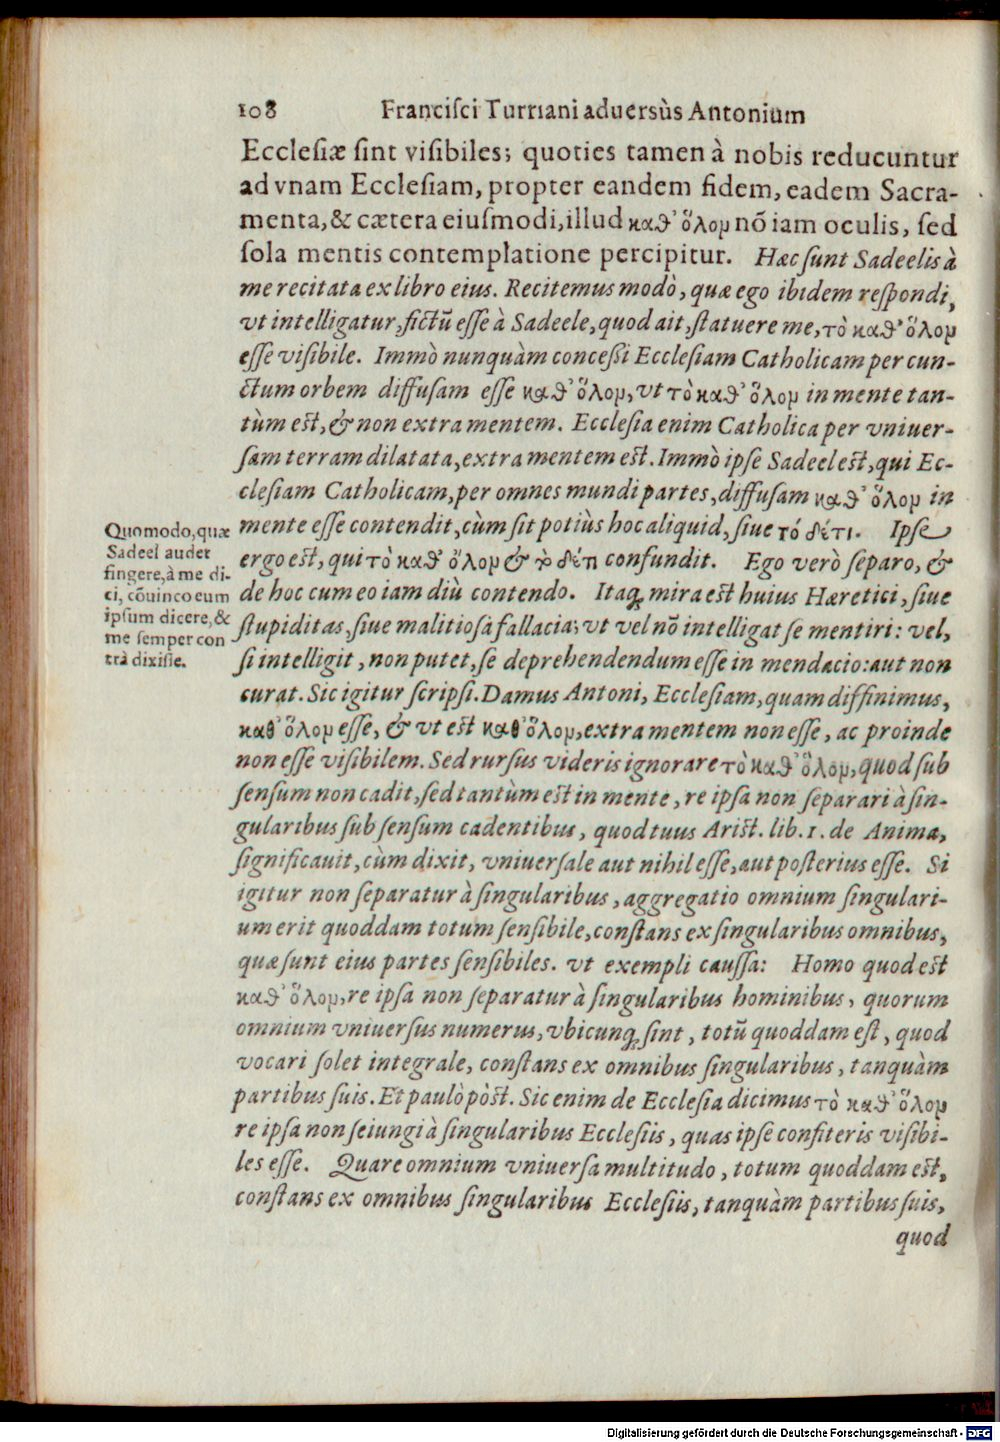 108 Franciſci Turriani aduersùs Antonium
Eccleſiæ ſint viſibiles; quoties tamen à nobis reducuntur
ad vnam Eccleſiam, propter eandem fidem, eadem Sacra-
menta, & cætera eiuſmodi, illud καθ' ὅλου nō iam oculis, ſed
ſola mentis contemplatione percipitur. Hæc ſunt Sadeelis à
me recitata ex libro eius. Recitemus modò, quæ ego ibidem reſpondi,
vt intelligatur, fictū eſſe à Sadeele, quod ait, ſtatuere me, τὸ καθ' ὅλου
eſſe viſibile. Immò nunquàm conceſſi Eccleſiam Catholicam per cun-
ctum orbem diffuſam eſſe καθ' ὅλου, vt τὸ καθ' ὅλου in mente tan-
tùm eſt, & non extra mentem. Eccleſia enim Catholica per vniuer-
ſam terram dilatata, extra mentem eſt. Immò ipſe Sadeel eſt, qui Ec-
cleſiam Catholicam, per omnes mundi partes, diffuſam καθ' ὅλου in
mente eſſe contendit, cùm ſit potiùs hoc aliquid, ſiue τό δέ τι. Ipſe
ergo eſt, qui τὸ καθ' ὅλου & τὸ δέ τι confundit. Ego verò ſeparo, &
de hoc cum eo iam diù contendo. Itaq; mira eſt huius Hæretici, ſiue
ſtupiditas, ſiue malitioſa fallacia; vt vel nō intelligat ſe mentiri: vel,
ſi intelligit, non putet, ſe deprehendendum eſſe in mendacio: aut non
curat. Sic igitur ſcripſi. Damus Antoni, Eccleſiam, quam diffinimus,
καθ' ὅλου eſſe, & vt eſt καθ' ὅλου, extra mentem non eſſe, ac proinde
non eſſe viſibilem. Sed rurſus videris ignorare τὸ καθ' ὅλου, quod ſub
ſenſum non cadit, ſed tantùm eſt in mente, re ipſa non ſeparari à ſin-
gularibus ſub ſenſum cadentibus, quod tuus Ariſt. lib. 1. de Anima,
ſignificauit, cùm dixit, vniuerſale aut nihil eſſe, aut poſterius eſſe. Si
igitur non ſeparatur à ſingularibus, aggregatio omnium ſingulari-
um erit quoddam totum ſenſibile, conſtans ex ſingularibus omnibus,
quæ ſunt eius partes ſenſibiles. vt exempli cauſſa: Homo quod eſt
καθ' ὅλου, re ipſa non ſeparatur à ſingularibus hominibus, quorum
omnium vniuerſus numerus, vbicunq; ſint, totū quoddam eſt, quod
vocari ſolet integrale, conſtans ex omnibus ſingularibus, tanquàm
partibus ſuis. Et paulò pòſt. Sic enim de Eccleſia dicimus τὸ καθ' ὅλου
re ipſa non ſeiungi à ſingularibus Eccleſiis, quas ipſe confiteris viſibi-
les eſſe. Quare omnium vniuerſa multitudo, totum quoddam eſt,
conſtans ex omnibus ſingularibus Eccleſiis, tanquàm partibus ſuis,
quod
Quomodo, quæ
Sadeel audet
fingere, à me di-
ci, cōuinco eum
ipſum dicere, &
me ſemper con
trà dixiſſe.
Digitalisierung gefördert durch die Deutsche Forschungsgemeinschaft - DFG